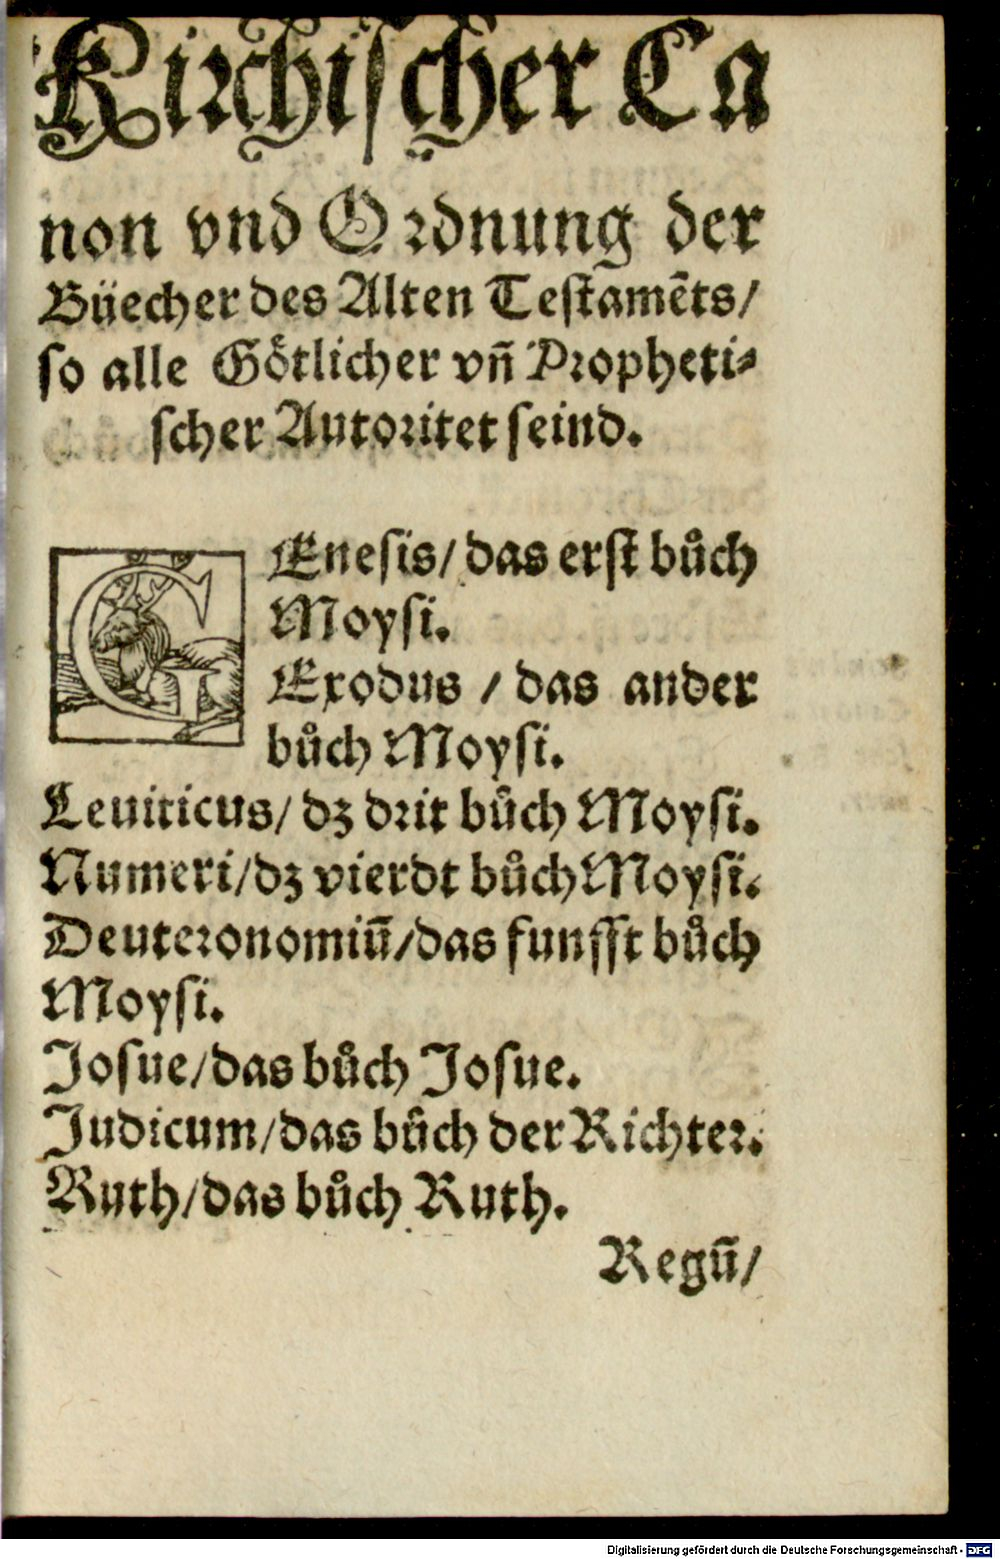 Kirchischer Ca
non vnd Ordnung der
Büecher des Alten Testamẽts/
so alle Götlicher vñ Propheti⸗
scher Autoritet seind.
GEnesis/ das erst bůch
Moysi.
Exodus / das ander
bůch Moysi.
Leuiticus/ dz drit bůch Moysi.
Numeri/dz vierdt bůch Moysi.
Deuteronomiũ/das funfft bůch
Moysi.
Josue/das bůch Josue.
Judicum/das bůch der Richter.
Ruth/das bůch Ruth.
Regũ/
Digitalisierung gefördert durch die Deutsche Forschungsgemeinschaft - DFG